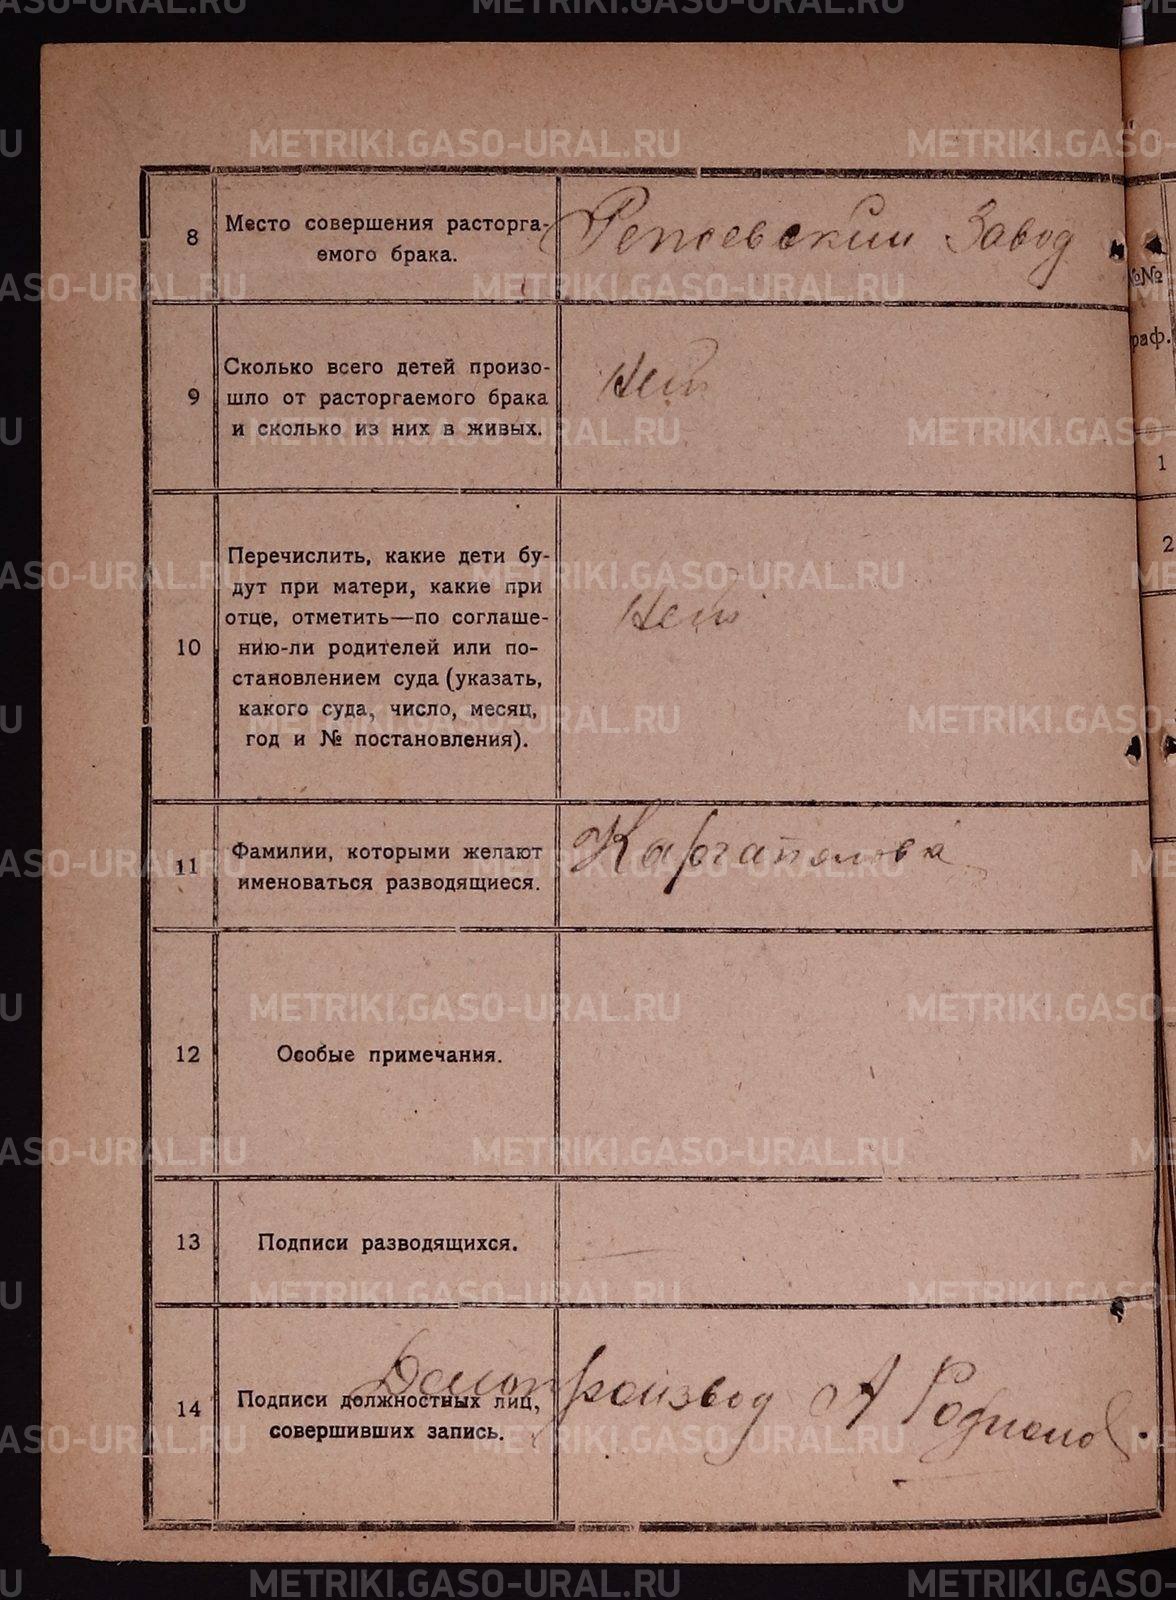 8
Место совершения расторга-
емого брака.
Режевский Завод
9
Сколько всего детей произо-
шло от расторгаемого брака
и сколько из них в живых.
Нет
10
Перечислить, какие дети бу-
дут при матери, какие при
отце, отметить—по соглаше-
нию-ли родителей или по-
становлением суда (указать,
какого суда, число, месяц,
год и № постановления).
Нет
11
Фамилии, которыми желают
именоваться разводящиеся.
Каргаполова
12
Особые примечания.
13
Подписи разводящихся.
14
Подписи должностных лиц,
совершивших запись.
Делопроизвод А Родионов.
№№
раф.
1
2
METRIKI.GASO-URAL.RU